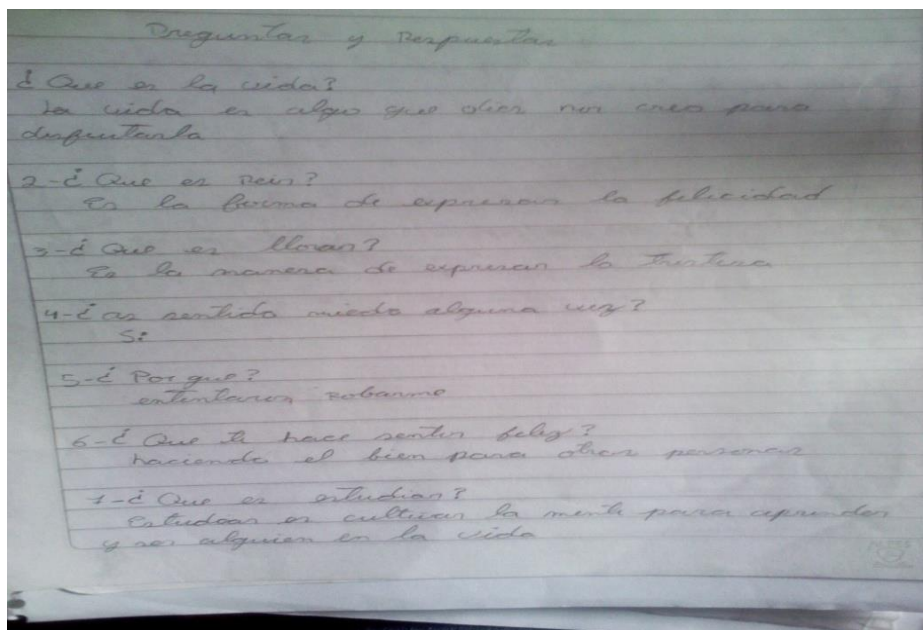 Preguntas y Respuestas
¿Que es la vida?
la vida es algo que dios nos creo para
disfrutarla
2-¿Que es Reir?
Es la forma de expresar la felicidad
3-¿Que es llorar?
Es la manera de expresar la tristeza
4-¿as sentido miedo alguna vez?
Si
5-¿Por que?
entintaron Robarme
6-¿Que te hace sentir feliz?
haciendo el bien para otras personas
7-¿Que es estudiar?
Estudear es cultivar la mente para aprender
y ser alguien en la vida